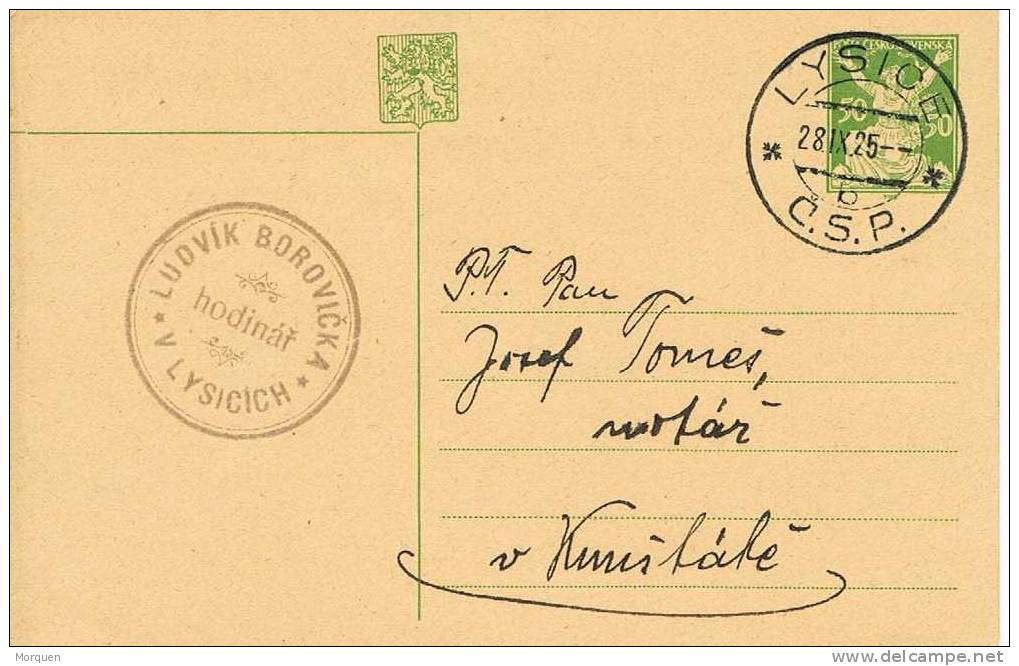 POŠTA ČESKOSLOVENSKA
50 50
LYSICE
28.IX.25--
b
Č.S.P.
LUDVÍK BOROVIČKA
hodinář
V LYSICÍCH
P.T. Pan
Josef Tomeš,
notář
v Kunštátě
Morquen
delcampe.net